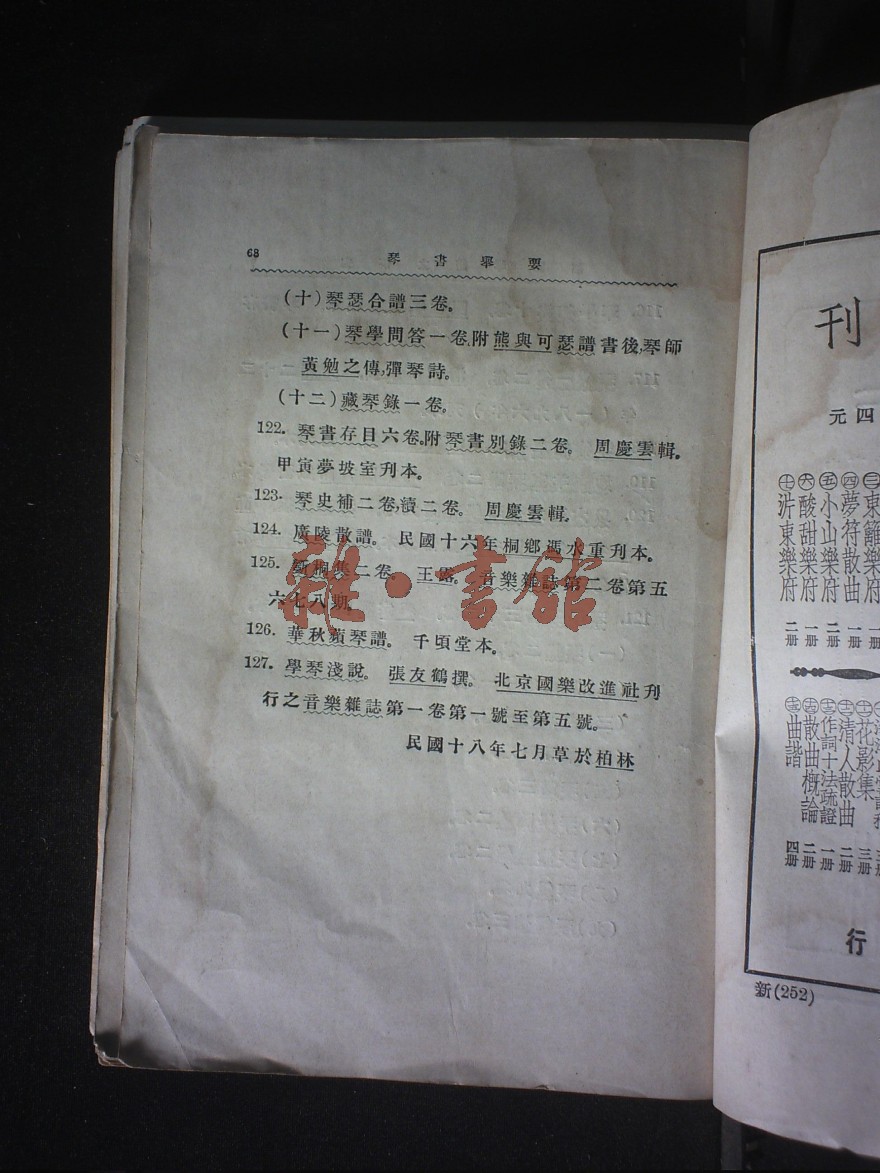 68
琴書舉要
(十)琴瑟合譜三卷。
(十一)琴學問答一卷,附熊與可瑟譜書後,琴師
黃勉之傳,彈琴詩。
(十二)藏琴錄一卷。
122. 琴書存目六卷。附琴書別錄二卷。 周慶雲輯。
甲寅夢坡室刊本。
123. 琴史補二卷,續二卷。 周慶雲輯。
124. 廣陵散譜。 民國十六年桐鄉馮水重刊本。
125. 桐集二卷。 王露。 音樂雜誌第二卷第五
六七八期。
126. 華秋蘋琴譜。 千頃堂本。
127. 學琴淺說。 張友鶴撰。 北京國樂改進社刊
行之音樂雜誌第一卷第一號至第五號。
民國十八年七月草於柏林
雜·書館
刊
四元
東籬樂府 一册
㊃夢符散曲 二册
㊄小山樂府 二册
㊅酸甜樂府 一册
㊆沜東樂府 二册
花影集 三册
清人散曲 二册
作詞十法疏證 一册
散曲概論 二册
曲諧 四册
行
新(252)